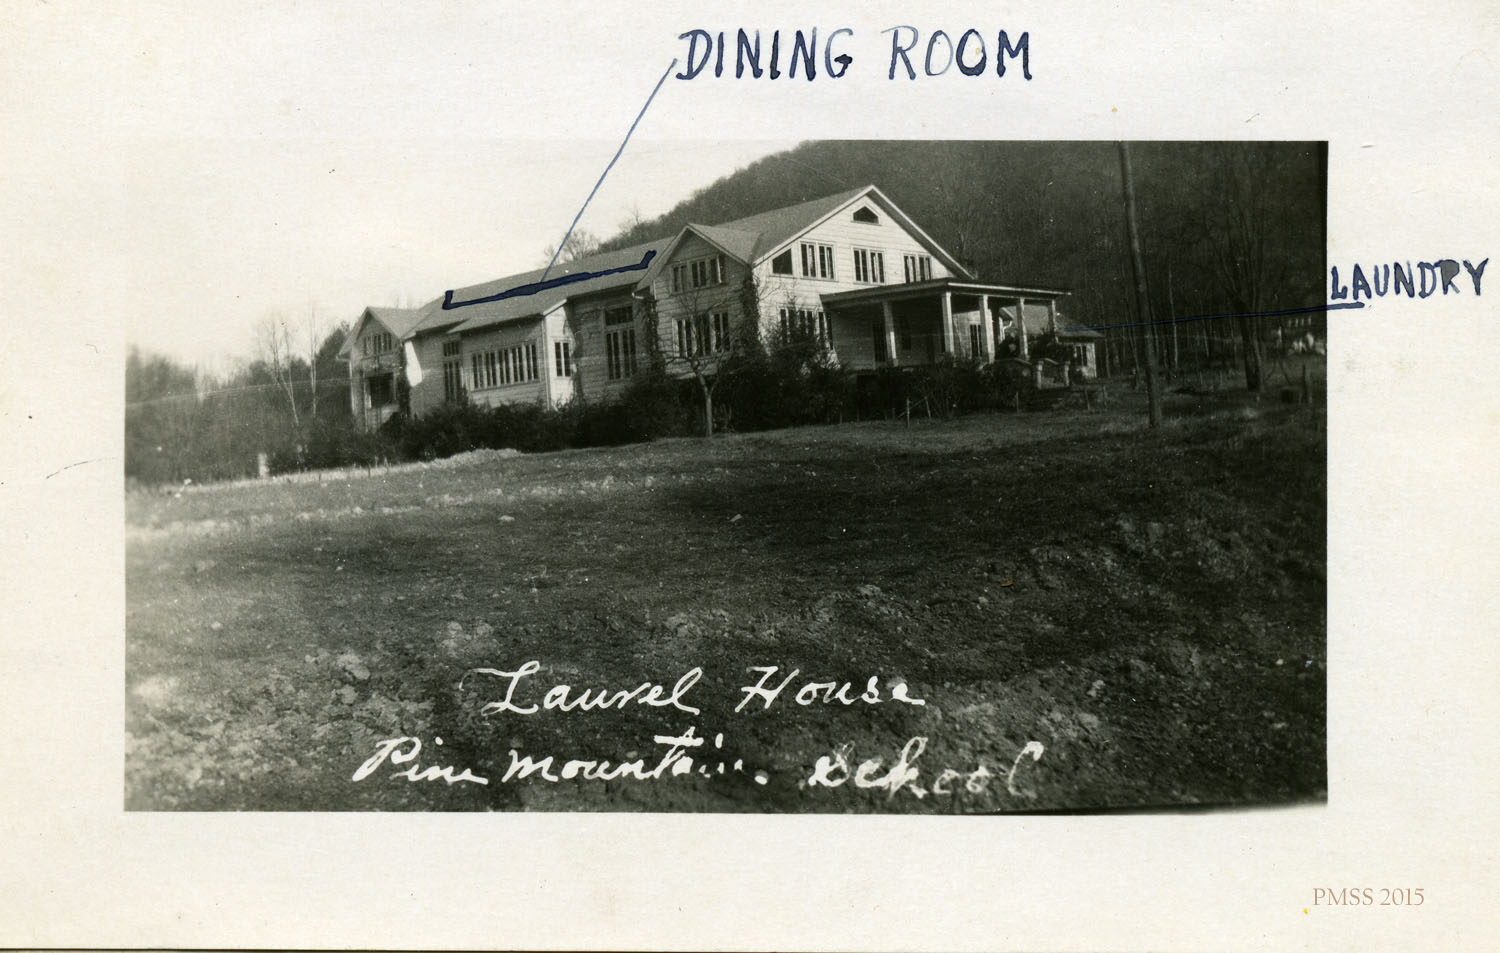 DINING ROOM
LAUNDRY
Laurel House
Pine Mountain. School
PMSS 2015